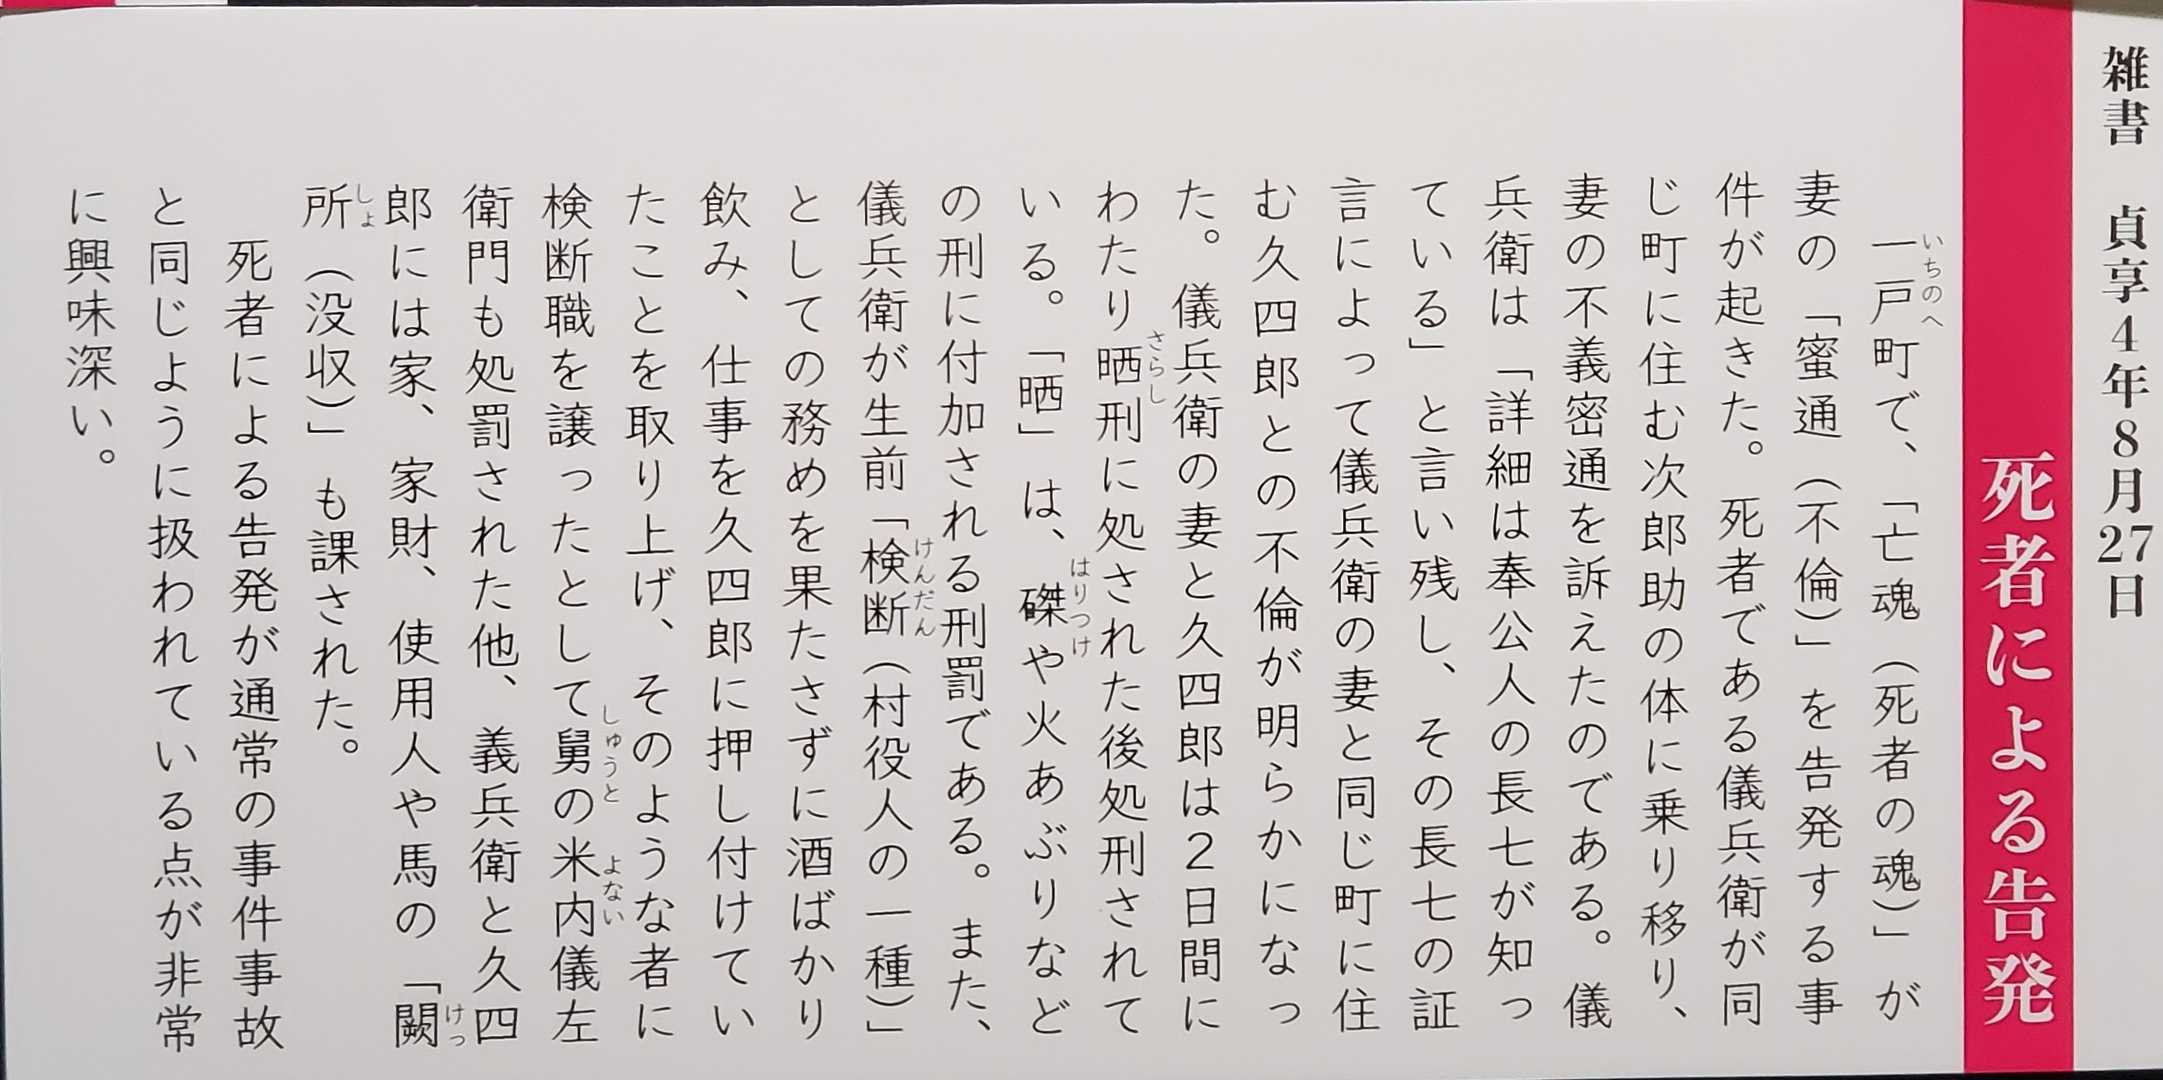 雑書 貞享4年8月27日
死者による告発
一戸町で、「亡魂（死者の魂）」が
妻の「蜜通（不倫）」を告発する事
件が起きた。死者である儀兵衛が同
じ町に住む次郎助の体に乗り移り、
妻の不義密通を訴えたのである。儀
兵衛は「詳細は奉公人の長七が知っ
ている」と言い残し、その長七の証
言によって儀兵衛の妻と同じ町に住
む久四郎との不倫が明らかになっ
た。儀兵衛の妻と久四郎は２日間に
わたり晒刑に処された後処刑されて
いる。「晒」は、磔や火あぶりなど
の刑に付加される刑罰である。また、
儀兵衛が生前「検断（村役人の一種）」
としての務めを果たさずに酒ばかり
飲み、仕事を久四郎に押し付けてい
たことを取り上げ、そのような者に
検断職を譲ったとして舅の米内儀左
衛門も処罰された他、義兵衛と久四
郎には家、家財、使用人や馬の「闕
所（没収）」も課された。
死者による告発が通常の事件事故
と同じように扱われている点が非常
に興味深い。
いちのへ
さらし
はりつけ
けんだん
しゅうと
よない
けっ
しょ